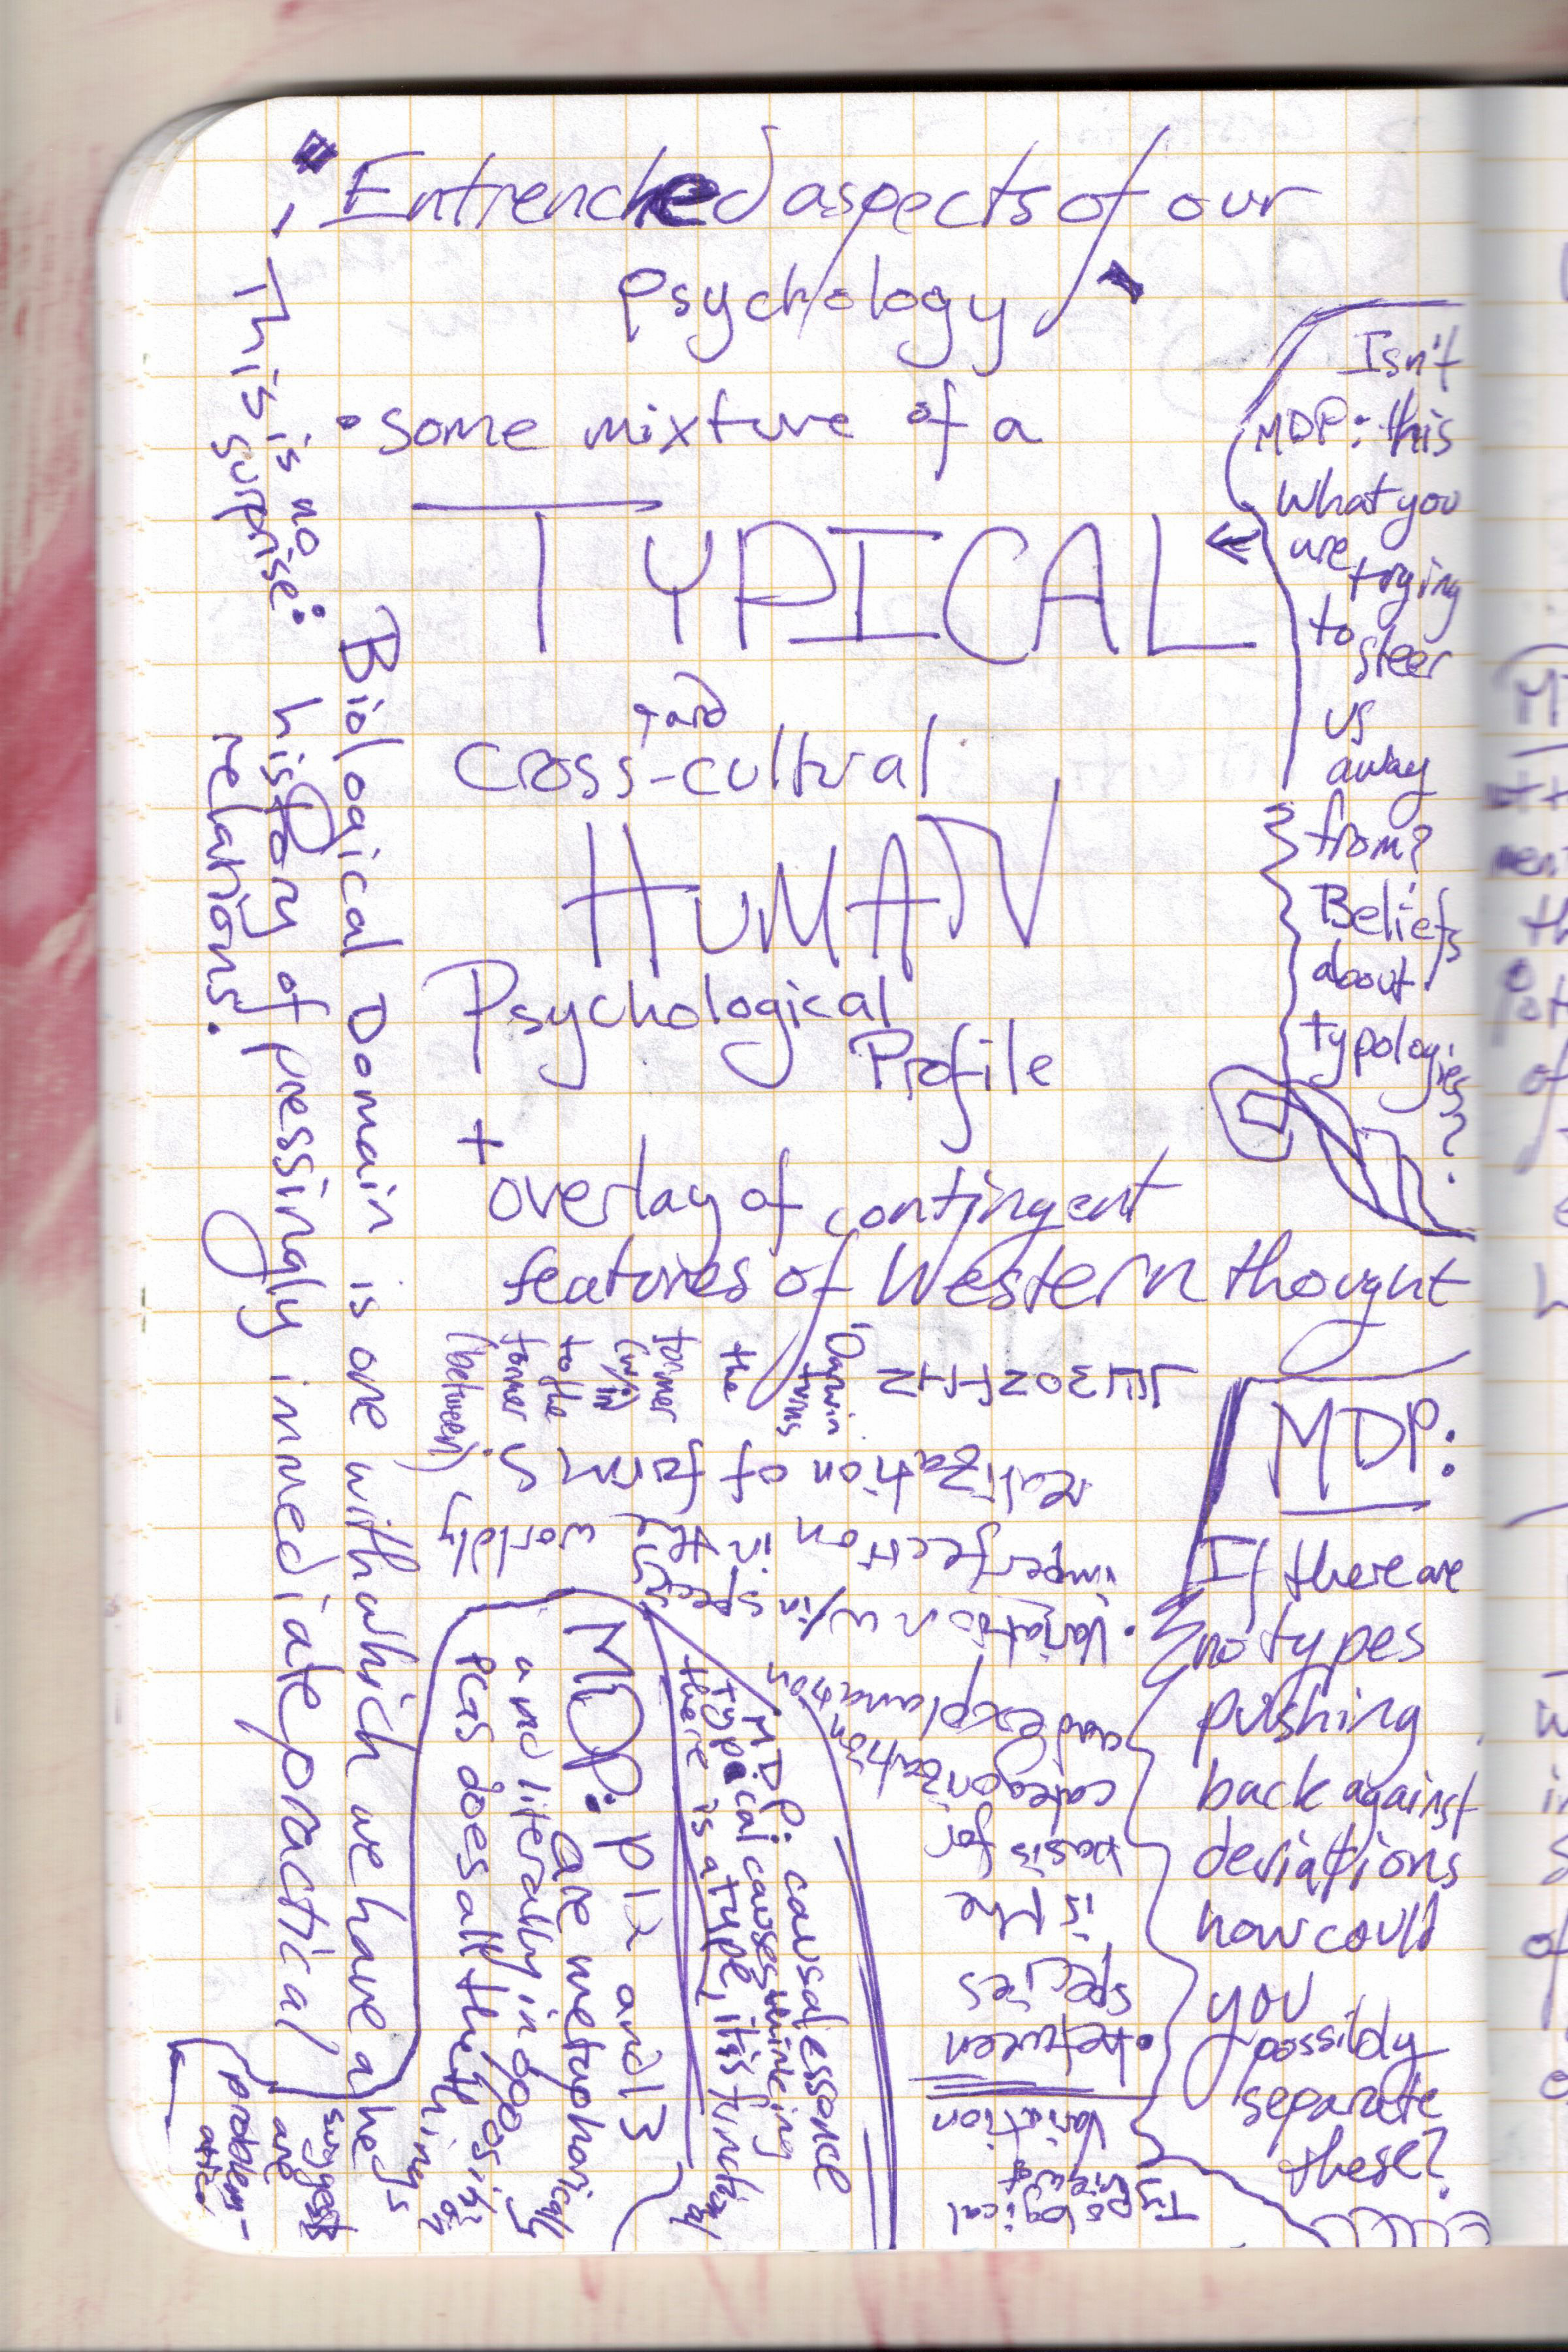 Entrenched aspects of our
psychology
• some mixture of a
TYPICAL
and
cross-cultural
HUMAN
Psychological
Profile
+
overlay of contingent
features of Western thought
Isn't
MDP: this
what you
are trying
to steer
us
away
from?
Beliefs
about
typologies?
MDP:
If there are
no types
pushing
back against
deviations
how could
you
possibly
separate
these?
Typological
view of
variation
• between
species
is the
basis for
categorization
and explanation
• variation w/in species
imperfection in the worldly
realization of form
Darwin
turns
the
former
(w/in)
to the
former
(between)
MDP: causal essence
typical causes mincing
there is a type, its functional
MDP: p 12 and 13
are metaphorically
and literally in opposing
PCRS does all the things he's on
Biological Domain is one with which we have a
This is no surprise:
history of pressingly immediate practical
relations.
he
suggests
are
problem-
atic.